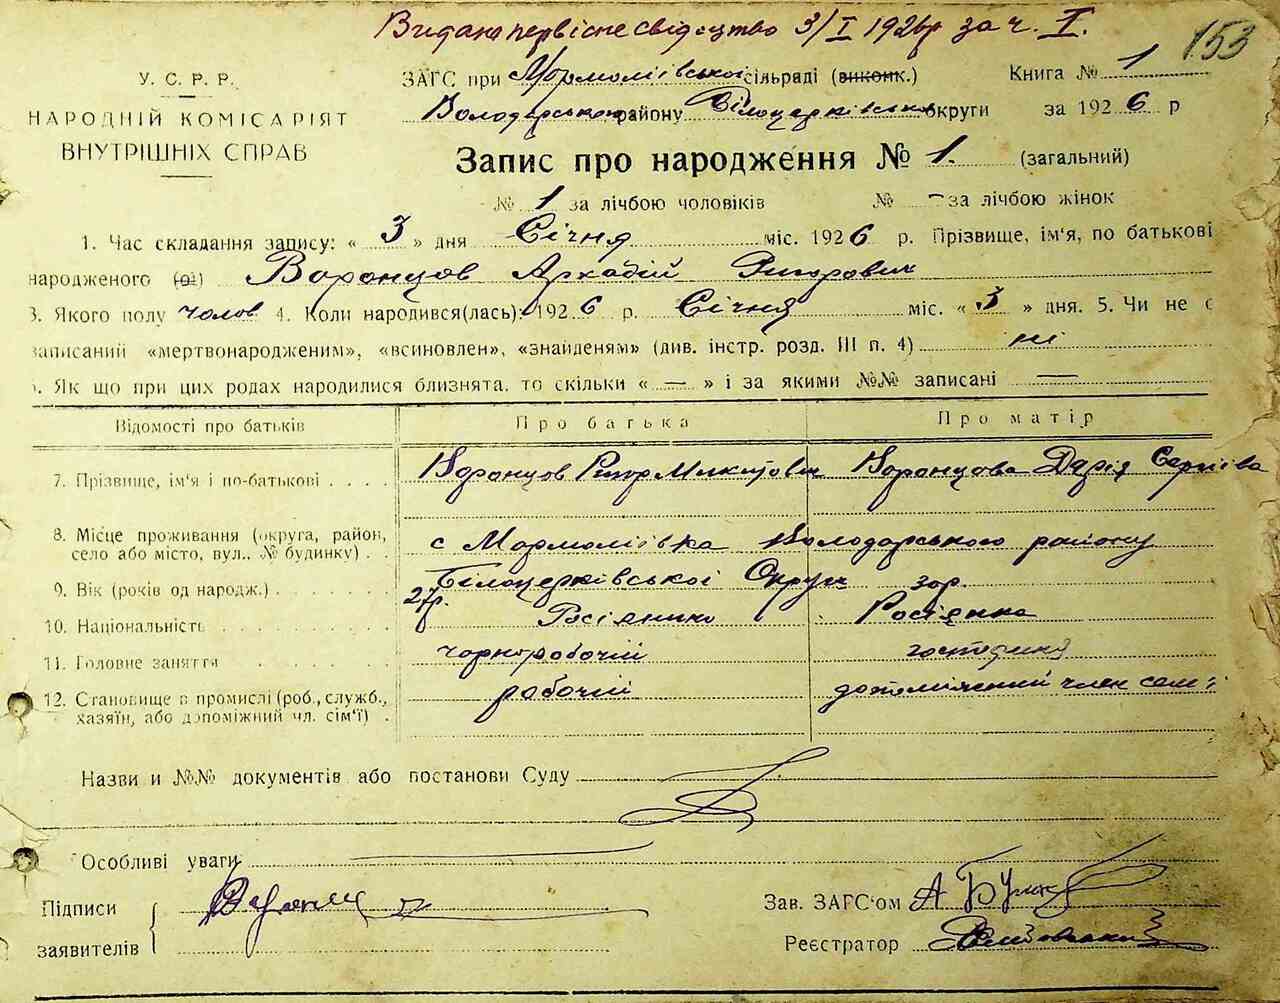 Видано первісне свідоцтво 3/I 1926р за ч. I.
153
У. С. Р. Р.
НАРОДНІЙ КОМІСАРІЯТ
ВНУТРІШНІХ СПРАВ
ЗАГС при Мормоліївської сільраді (виконк.)
Книга № 1
Володарського району Білоцерківської округи за 1926 р
Запис про народження № 1. (загальний)
№ 1 за лічбою чоловіків № - за лічбою жінок
1. Час складання запису: « 3 » дня Січня міс. 1926 р. Прізвище, ім'я, по батькові
народженого (ої) Воронцов Аркадій Григорович
3. Якого полу чолов 4. Коли народився(лась): 1926 р. Січня міс. « 3 » дня. 5. Чи не є
записаний «мертвонародженим», «всиновлен», «знайденям» (див. інстр. розд. III п. 4) ні
. Як що при цих родах народилися близнята, то скільки « — » і за якими №№ записані —
Відомості про батьків
Про батька
Про матір
7. Прізвище, ім'я і по-батькові . . . .
Воронцов Григор Микитович
Воронцова Дарія Сергієва
8. Місце проживання (округа, район,
село або місто, вул., № будинку) . .
с Мормоліївка Володарського району
Білоцерківської Округи
9. Вік (років од народж.) . . . . . . .
27р.
30р.
10. Національність . . . . . . . . .
Росіянин
Росіянка
11. Головне заняття . . . . . . .
чорноробочій
господиня
12. Становище в промислі (роб., служб.,
хазяїн, або допоміжний чл. сім'ї) .
рабочій
допоміжний член сем'ї
Назви и №№ документів або постанови Суду
Особливі уваги
Підписи
заявителів
Воронцов
Зав. ЗАГС'ом А
Реєстратор